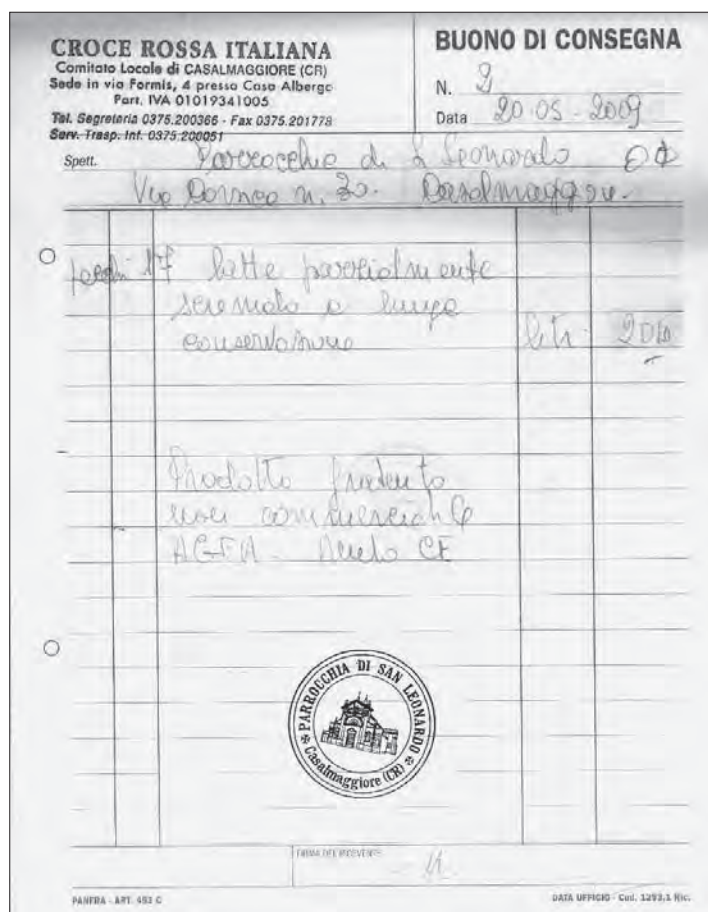 CROCE ROSSA ITALIANA
Comitato Locale di CASALMAGGIORE (CR)
Sede in via Formis, 4 presso Casa Albergo
Part. IVA 01019341005
Tel. Segreteria 0375.200366 - Fax 0375.201778
Serv. Trasp. Inf. 0375.200051
BUONO DI CONSEGNA
N. 2
Data 20-05-2009
Spett. Parrocchia di S Leonardo
Via n. 20. Casalmaggiore.
latte parzialmente
scremato a lunga
conservazione litri
Prodotto
non commerciale
CE
PARROCCHIA DI SAN LEONARDO
Casalmaggiore (CR)
FIRMA DEL RICEVENTE
PANFRA - ART. 493 C
DATA UFFICIO - Cod. 1293.1 Ric.